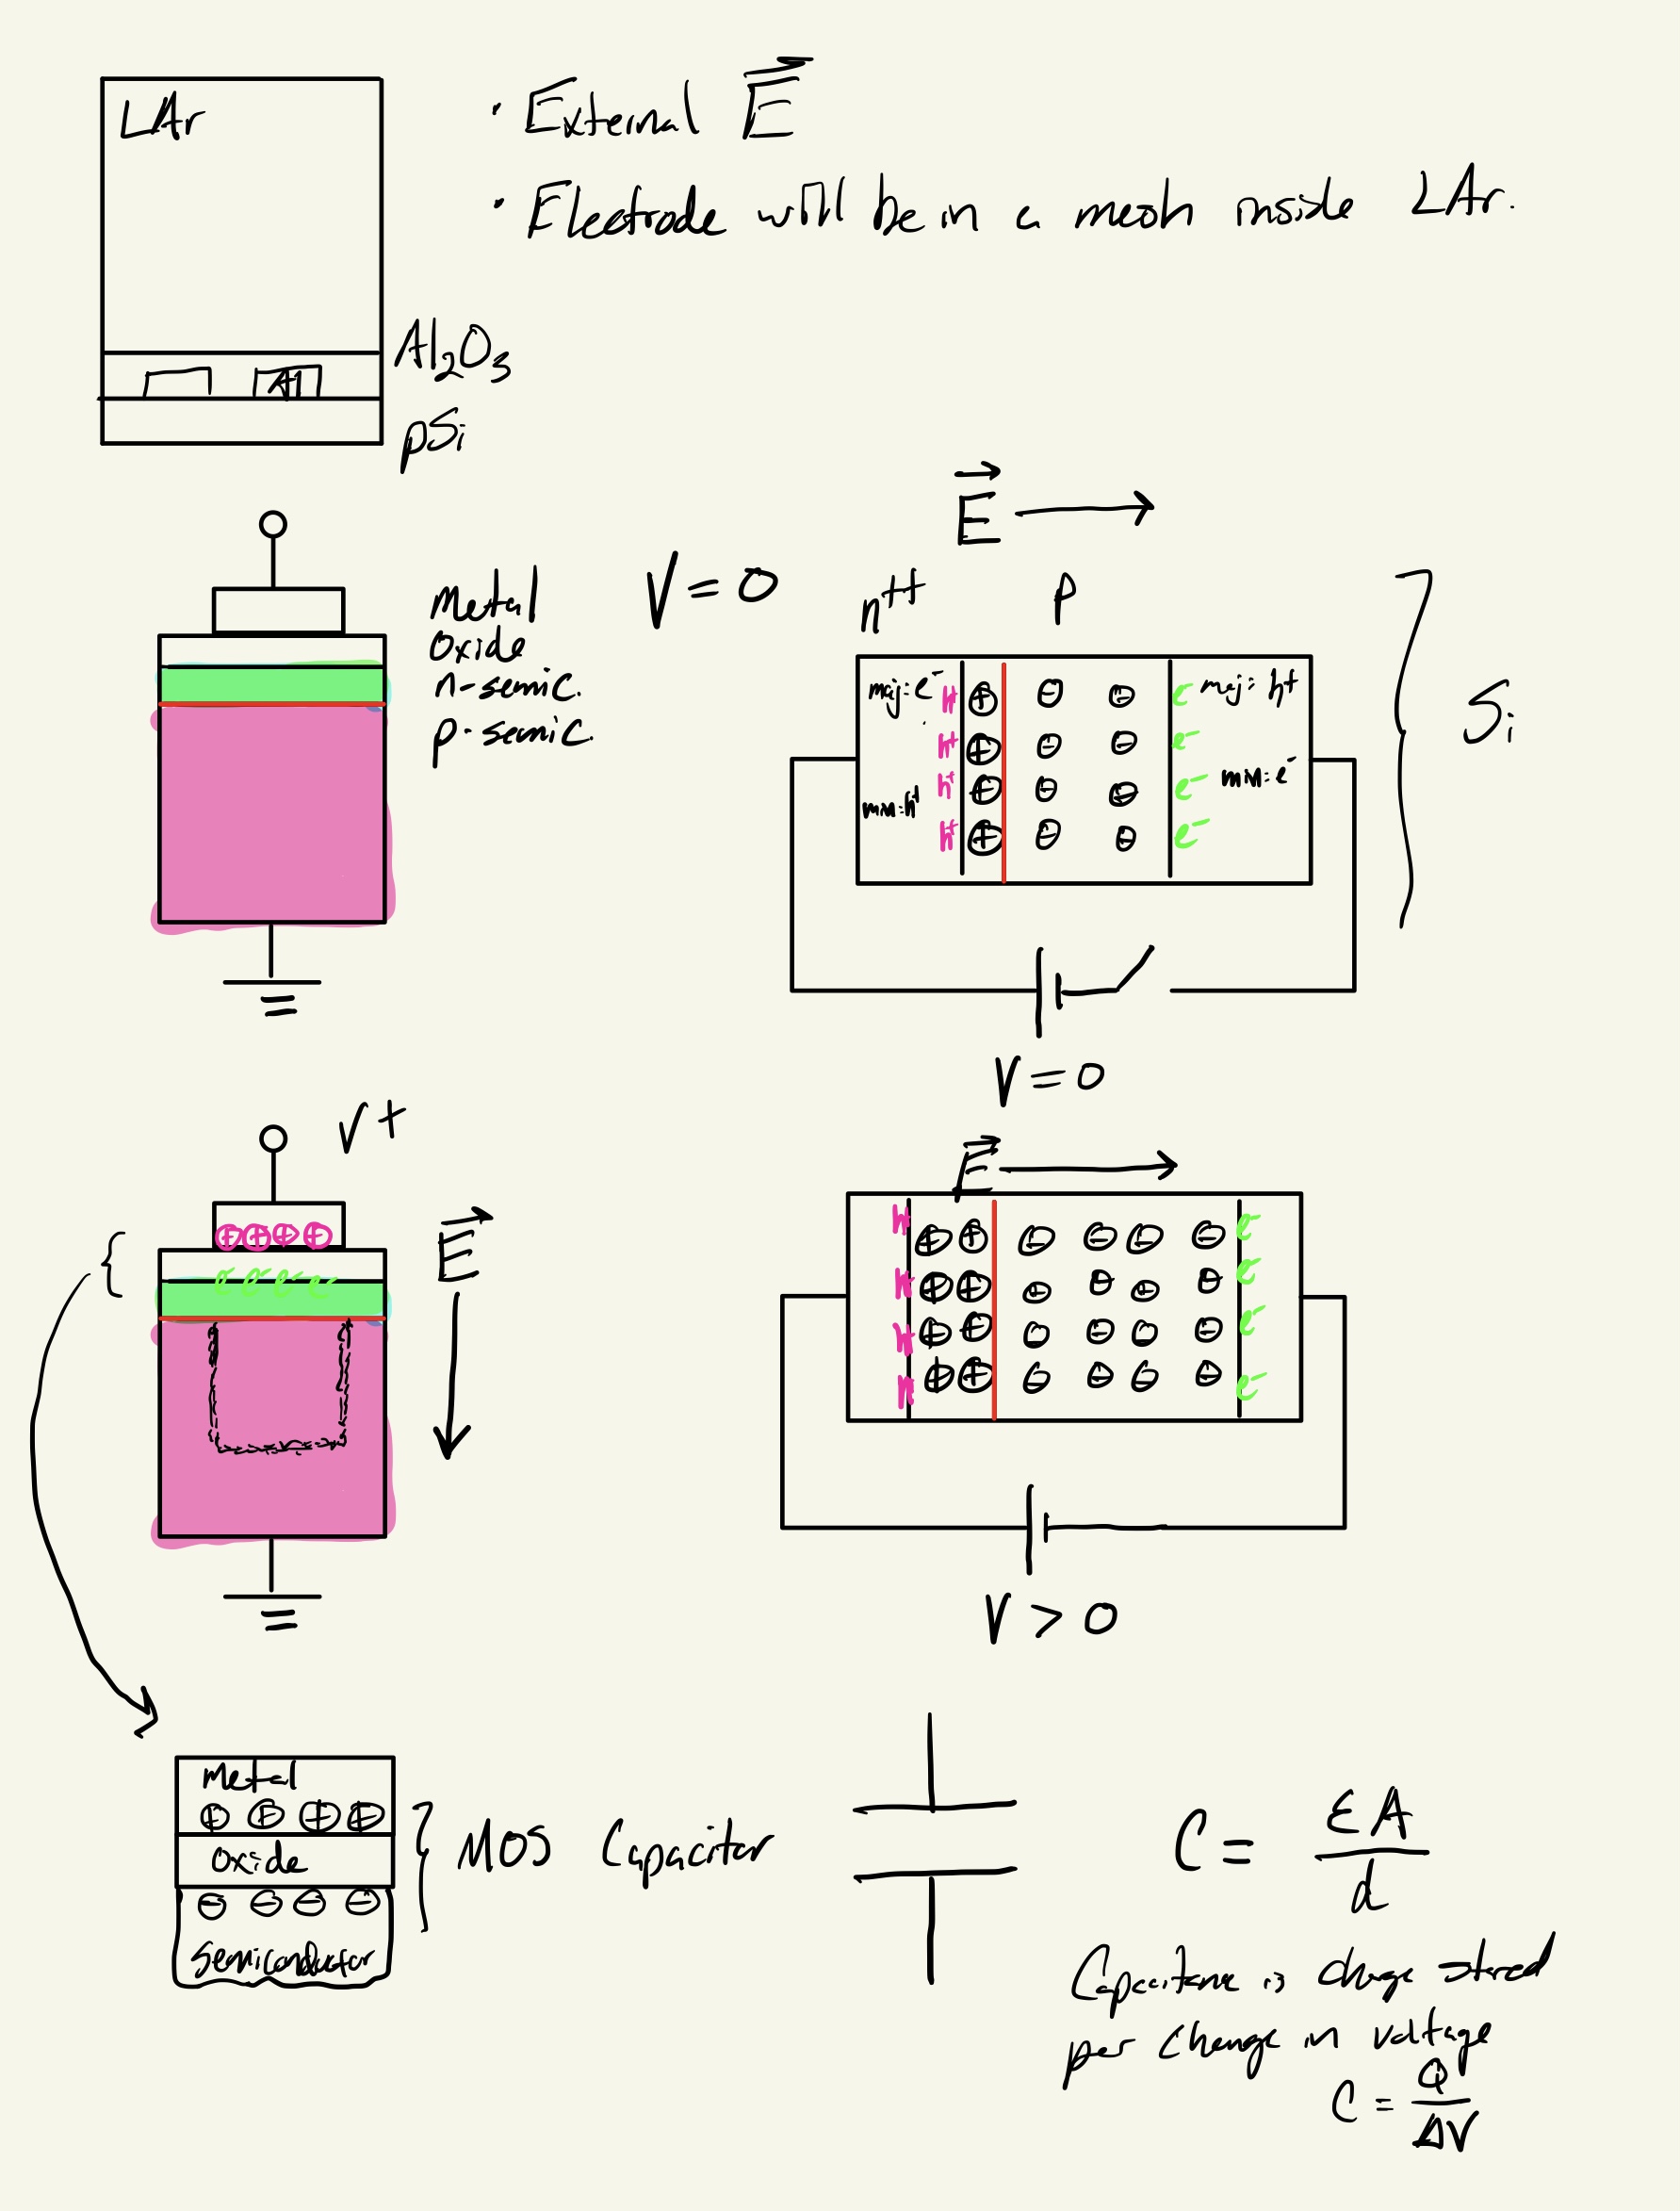 LAr
· External E
· Electrode will be in a mesh inside LAr.
Al₂O₃
pSi
E
V = 0
n⁺⁺
p
metal
oxide
n-semic.
p-semic.
maj: e⁻
h⁺ ⊕ ⊖ ⊖ e⁻
maj: h⁺
h⁺ ⊕ ⊖ ⊖ e⁻
h⁺ ⊕ ⊖ ⊖ e⁻
min: e⁻
min: h⁺
h⁺ ⊕ ⊖ ⊖ e⁻
Si
V = 0
V+
E
⊕ ⊕ ⊕ ⊕
e⁻ e⁻ e⁻ e⁻
E
h ⊕ ⊕ ⊖ ⊖ ⊖ ⊖ e⁻
h ⊕ ⊕ ⊖ ⊖ ⊖ ⊖ e⁻
h ⊕ ⊕ ⊖ ⊖ ⊖ ⊖ e⁻
h ⊕ ⊕ ⊖ ⊖ ⊖ ⊖ e⁻
V > 0
Metal
⊕ ⊕ ⊕ ⊕
Oxide
⊖ ⊖ ⊖ ⊖
Semiconductor
MOS Capacitor
C = εA/d
Capacitance is charge stored
per change in voltage
C = Q/ΔV